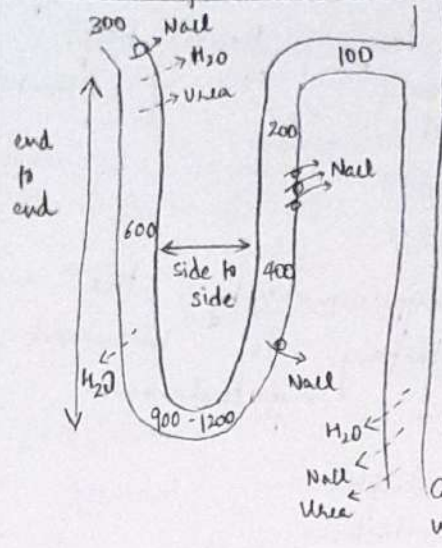 300
NaCl
H₂O
Urea
100
200
end
to
end
NaCl
600
side to
side
400
H₂O
NaCl
900 - 1200
H₂O
NaCl
Urea